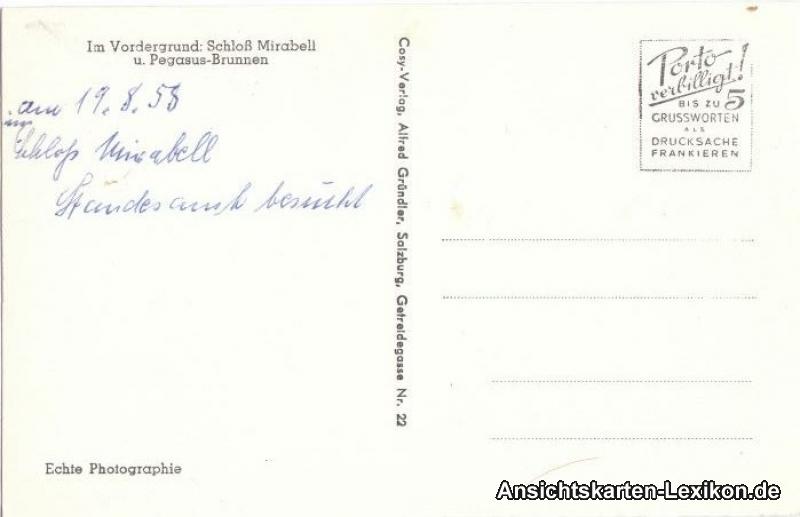 Im Vordergrund: Schloß Mirabell
u. Pegasus-Brunnen
am 19.8.58
im
Schloß Mirabell
Standesamt besucht
Echte Photographie
Cosy-Verlag, Alfred Gründler, Salzburg, Getreidegasse Nr. 22
Porto
verbilligt!
BIS ZU 5
GRUSSWORTEN
ALS
DRUCKSACHE
FRANKIEREN
Ansichtskarten-Lexikon.de